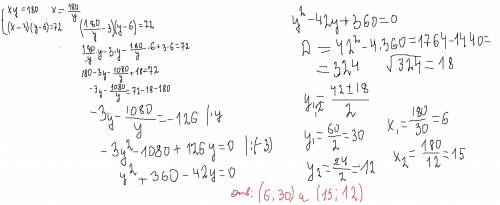 xy=180   x=180/y
(x-3)(y-6)=72   (180/y-3)(y-6)=72
180/y·y-3·y-180/y·6+3·6=72
180-3y-1080/y+18=72
-3y-1080/y=72-18-180
-3y-1080/y=-126 |·y
-3y²-1080+126y=0 |:(-3)
y²+360-42y=0
y²-42y+360=0
D=42²-4·360=1764-1440=
=324   √324=18
y₁,₂=42±18/2
y₁=60/2=30   x₁=180/30=6
y₂=24/2=12   x₂=180/12=15
отв: (6;30) и (15;12)